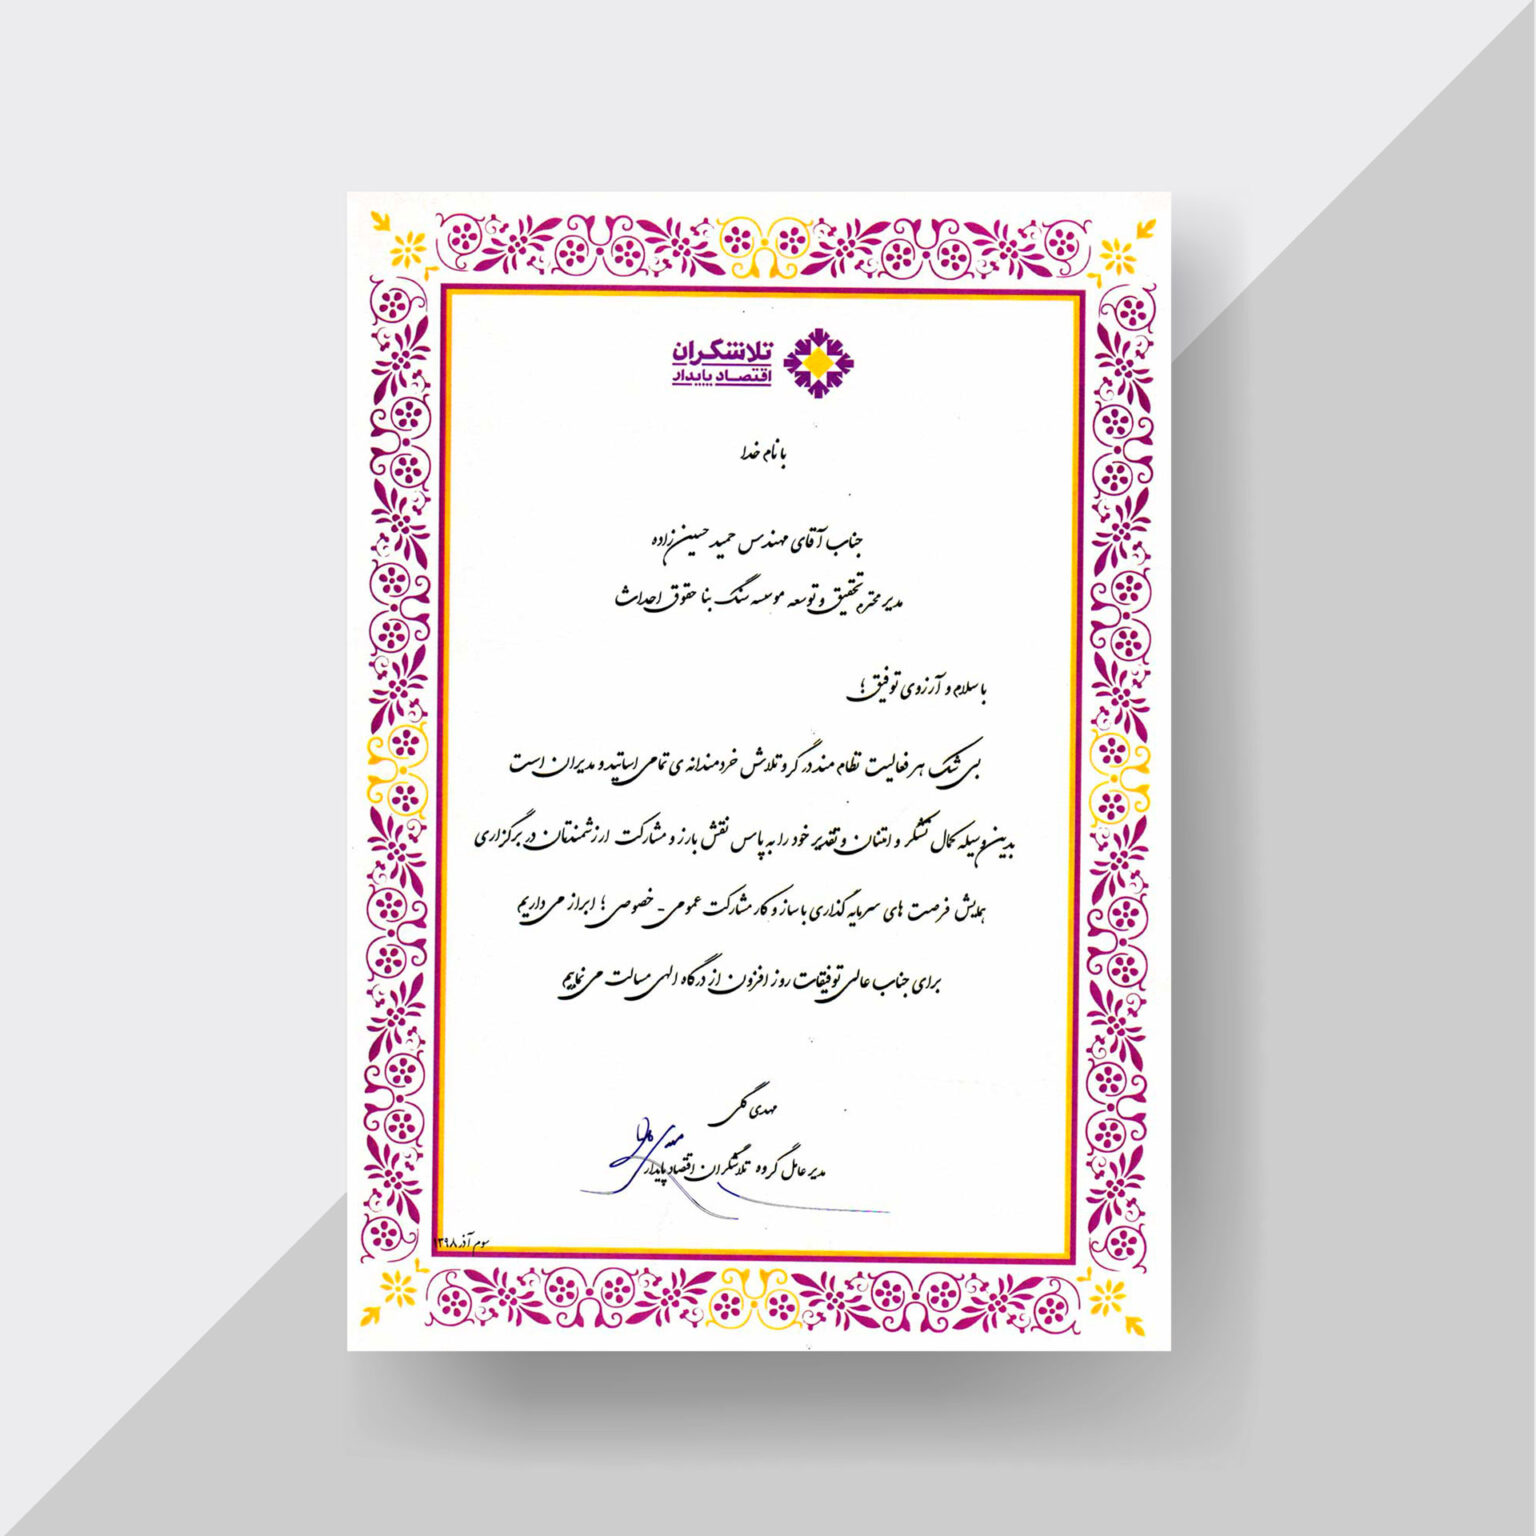 تلاشگران
اقتصاد پایدار
با نام خدا
جناب آقای مهندس حمید حسین زاده
مدیر محترم تحقیق و توسعه موسسه سنگ بنا حقوق احداث
با سلام و آرزوی توفیق؛
بی شک هر فعالیت نظام مند در گرو تلاش خردمندانه ی تمامی اساتید و مدیران است
بدین وسیله کمال تشکر و امتنان و تقدیر خود را به پاس نقش بارز و مشارکت ارزشمندتان در برگزاری
همایش فرصت های سرمایه گذاری با ساز و کار مشارکت عمومی - خصوصی ؛ ابراز می داریم
برای جناب عالی توفیقات روز افزون از درگاه الهی مسالت می نماییم
مهدی گلی
مدیر عامل گروه تلاشگران اقتصاد پایدار
سوم آذر ۱۳۹۸